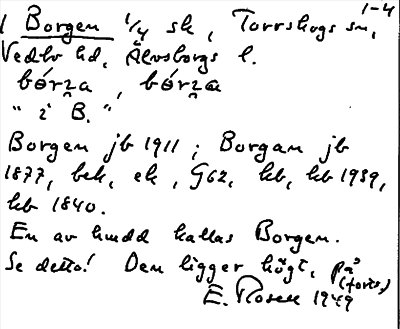 1-4
1 Borgen 1/4 sk, Torrskogs sn,
Vedbo hd, Älvsborgs l.
bórza, bórza
" i B. "
Borgen jb 1911; Borgan jb
1877, bek, ek, G62, kb, kb 1939,
kb 1840.
En av hmdd kallas Borgen.
Se detta! Den ligger högt, på
(forts.)
E. Rosell 1949